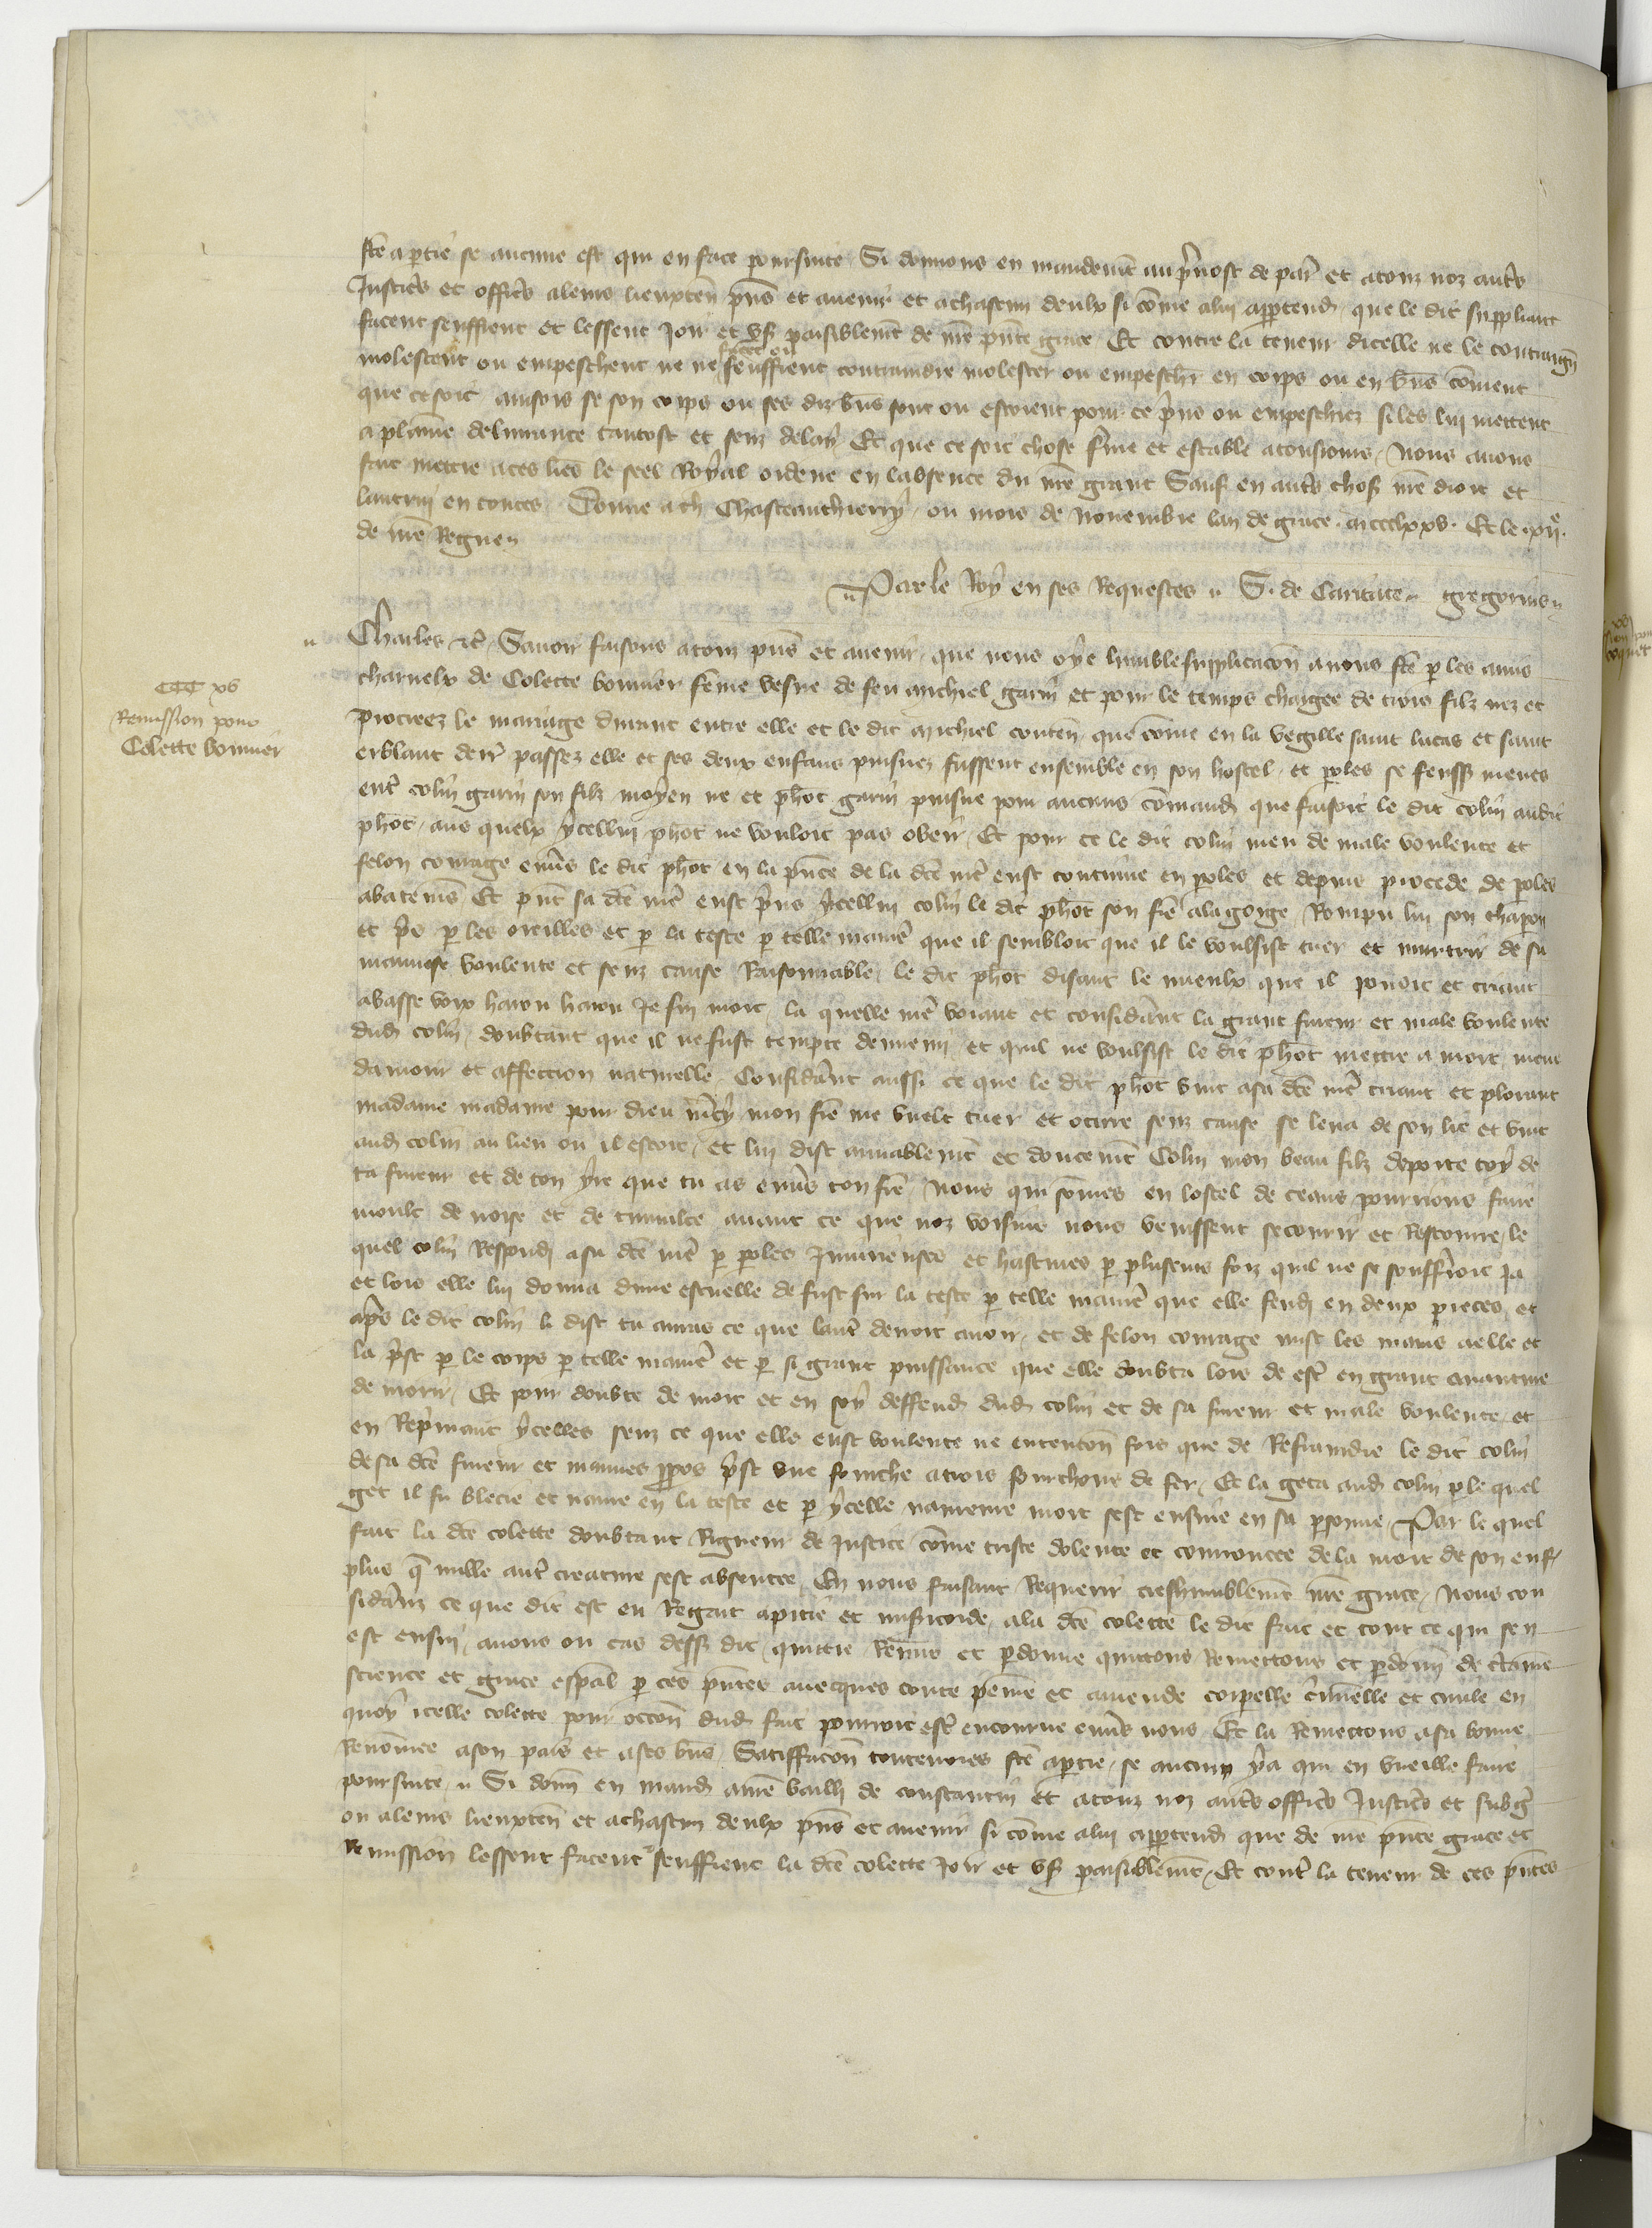 fte a partie se aucune est qui en face poursuite Si donnons en mandemt au prevost de par et a touz noz autrs
Justicrs et officrs a leurs lieuxten pns et avenir et a chascun deulx si come a lui appartend que le dit suppliant
facent seuffrent et lessent Joir et us paisiblemt de nre pnte grace Et contre la teneur dicelle ne le contraign
molestent ou empeschent ne ne seuffrent contraindre molester ou empeschr en corps ou en bns coment
que ce soit aincois se son corps ou ses diz bns sont ou estoient pour ce prins ou empeschiez si les lui mettent
a plaine delivrance tantost et senz delay Et que ce soit chose ferme et estable a tousjours Nous avons
fait mettre a ces lres le seel Royal ordene en labsence du nre grant Sauf en autrs chos nre droit et
lautruy en toutes Donne a Chasteauthierry ou mois de Novembre lan de grace mccclxxv Et le xije
de nre Regne
Par le Roy en ses Requestes S. de Caritate gregorius
Charles etc Savoir faisons a touz pns et avenir que nous oye lumble supplicacon a nous fte p les amis
CCC xv
Remission pour
Colette bonnier
charnelx de Colette bonnier feme vefve de feu Michiel garin et pour le temps chargee de trois filz nez et
procreez le mariage durant entre elle et le dit Michiel conten que come en la vegille saint lucas et saint
erblant derr passez elle et ses deux enfans puisnez fussent ensemble en son hostel et poles se feuss meues
entr colin garin son filz moyen ne et phot garin puisne pour aucuns comand que faisoit le dit colin audit
phot aus quelx ycellui phot ne vouloit pas obeir Et pour ce le dit colin meu de male voulente et
felon courage envers le dit phot en la pnce de la dce mre eust continue en poles et depuis procede de poles
a batemes Et pnt sa dce mre eust prins ycellui colin le dit phot son fre a la gorge Rompu lui son chapon
et prs p les oreilles et p la teste p telle manier que il sembloit que il le voulsist tuer et murtrir de sa
mauvese voulente et senz cause Raisonnable le dit phot disant le mieulx que il povoit et criant
a basse voix harou harou Je suy mort la quelle mre voiant et considant la grant fureur et male voulente
dud colin doubtant que il ne fust tempte dennemi et quil ne voulsist le dit phot mettre a mort meue
damour et affection naturelle Considant aussi ce que le dit phot vint a sa dce mre criant et plorant
madame madame pour dieu mcy mon fre me vuelt tuer et ocirre senz cause se leva de son lit et vint
aud colin au lieu ou il estoit et lui dist amiablemt et doucemt Colin mon beau filz deporte toy de
ta fureur et de ton yre que tu as envers ton fre Nous qui somes en lostel de ceans pourrions faire
moult de noise et de tumulte avant ce que noz voisins nous venissent secourir et Rescourre le
quel colin Respond a sa dce mre p poles Injurieuses et hastives p plusieurs foiz quil ne se souffriroit ja
et lors elle lui donna dune escuelle de fust sur la teste p telle manier que elle fendi en deux pieces et
apres le dit colin li dist tu auras ce que lautr devoit avoir et de felon courage mist les mains a elle et
la prist p le corps p telle manier et p si grant puissance que elle doubta lors de estr en grant aventure
de morir Et pour doubte de mort et en soy deffend dud colin et de sa fureur et male voulente et
en Reprimant ycelles senz ce que elle eust voulente ne ententon fors que de Refraindre le dit colin
de sa dce fureur et mauves ppos prist une fourche a trois fourchons de fer Et la geta aud colin p le quel
get il fu blecie et navre en la teste et p ycelle navreure mort sest ensuie en sa psonne Par le quel
fait la dce colette doubtant Rigueur de justice come triste dolente et couroucee de la mort de son enf
plus que nulle autr creature sest absentee En nous faisant Requerir treshumblemt nre grace Nous con
sidanz ce que dit est eu Regart a pitie et misericorde a la dce colette le dit fait et tout ce qui sen
est ensui avons ou cas dess dit quictie Remis et pdonne quictons Remettons et pdonn de ctaine
science et grace espal p ces pntes avecques toute peine et amende corpelle crimnelle et civile en
quoy icelle colette pour occon dud fait pourroit estr encourue envers nous Et la Remettons a sa bonne
Renomee a son pais et a ses bns Satiffacon toutevoies fte a partie se aucun y a qui en vueille faire
poursuite Si donn en mand au bailli de constantin Et a touz noz autrs officrs Justicrs et subg
ou a leurs lieuxten et a chascun deulx pns et avenir si come a lui appartend que de nre pnte grace et
Remission lessent facent seuffrent la dce colette Joir et us paisiblemt Et contr la teneur de ces pntes